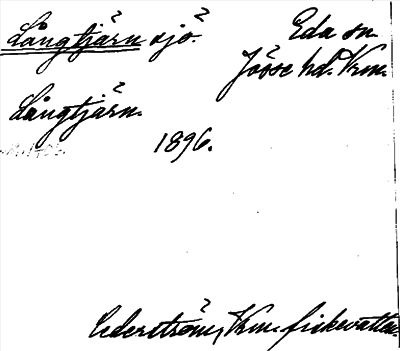 Långtjärn sjö.
Eda sn.
Jösse hd. Vrm.
Långtjärn.
1896.
Cederström, Vrm. fiskevatten.